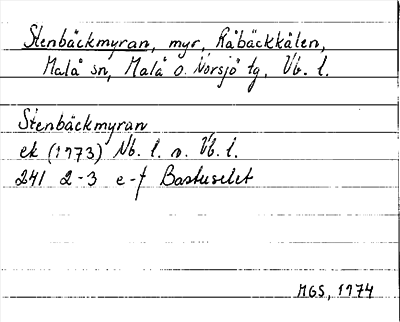 Stenbäckmyran, myr, Råbäckkålen,
Malå sn, Malå o. Norsjö tg. Vb. l.
Stenbäckmyran
ek (1973) Nb. l. o. Vb. l.
241 2-3 e-f Bastuselet
MGS, 1974